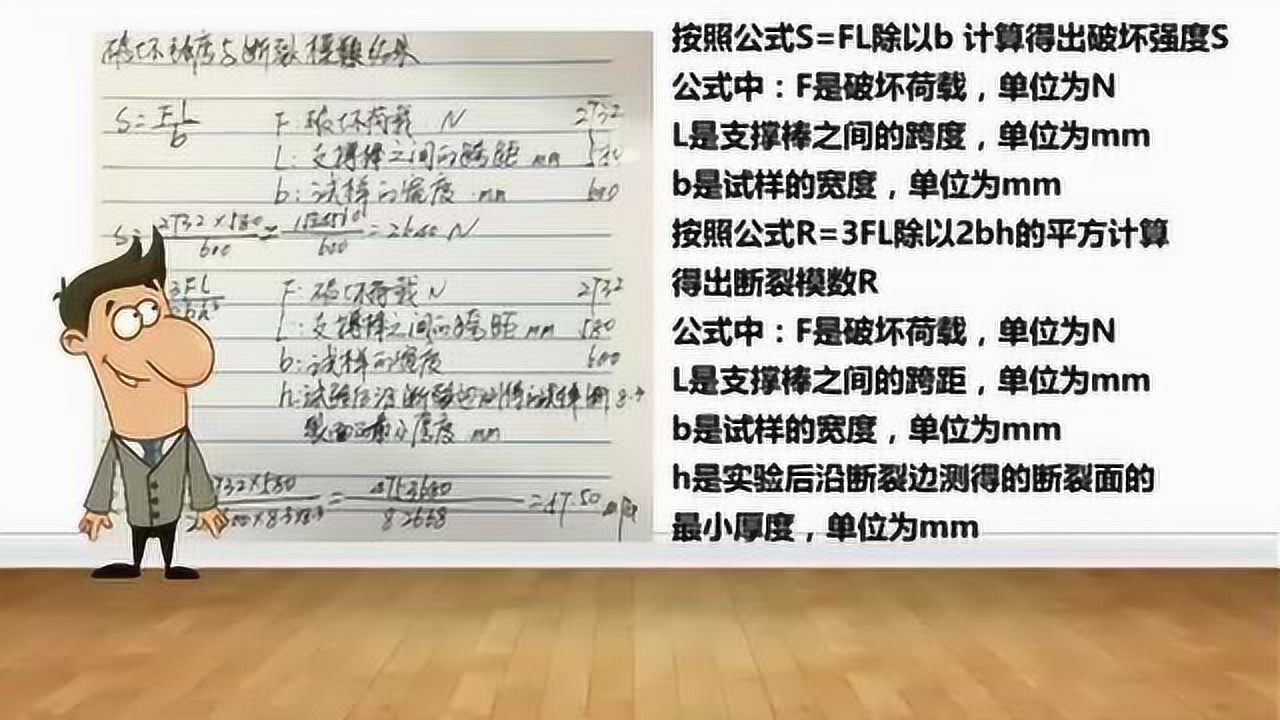 破坏强度与断裂模数结果
S=FL/b F:破坏荷载 N 2732
L:支撑棒之间的跨距 mm 580
b:试样的宽度 mm 600
2732×580/600 = /600 =2640 N
3FL F:破坏荷载 N 2732
L:支撑棒之间的跨距 mm 580
b:试样的宽度 600
h:试验后沿断裂边测得的试样断 8.3
裂面的最小厚度 mm
732×580 = 4753680/82668 =57.50
按照公式S=FL除以b 计算得出破坏强度S
公式中：F是破坏荷载，单位为N
L是支撑棒之间的跨度，单位为mm
b是试样的宽度，单位为mm
按照公式R=3FL除以2bh的平方计算
得出断裂模数R
公式中：F是破坏荷载，单位为N
L是支撑棒之间的跨距，单位为mm
b是试样的宽度，单位为mm
h是实验后沿断裂边测得的断裂面的
最小厚度，单位为mm